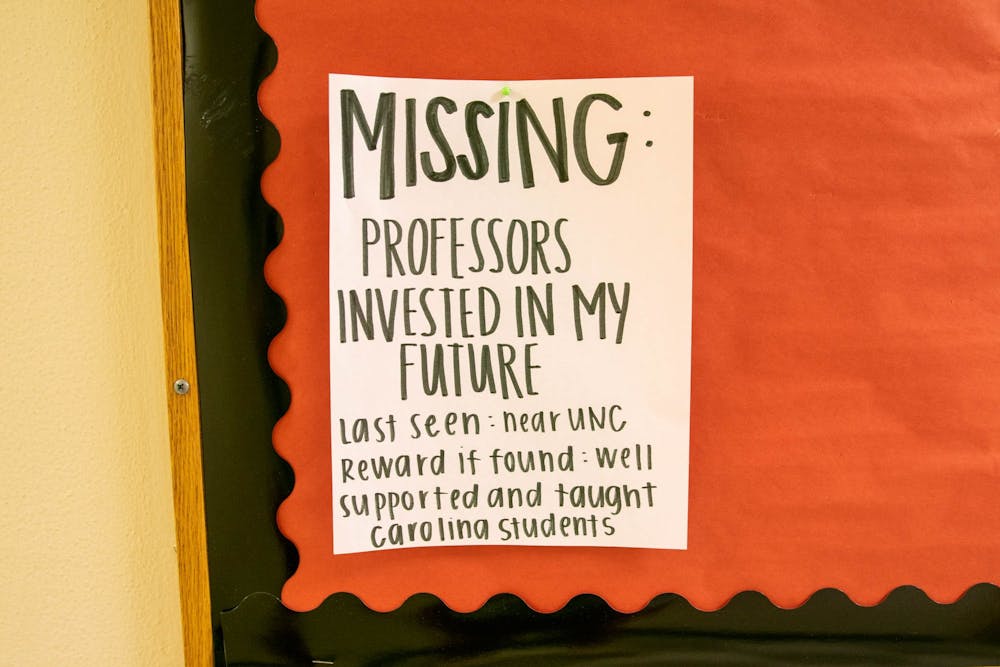 MISSING:
PROFESSORS
INVESTED IN MY
FUTURE
Last seen: near UNC
Reward if found: well
supported and taught
Carolina students